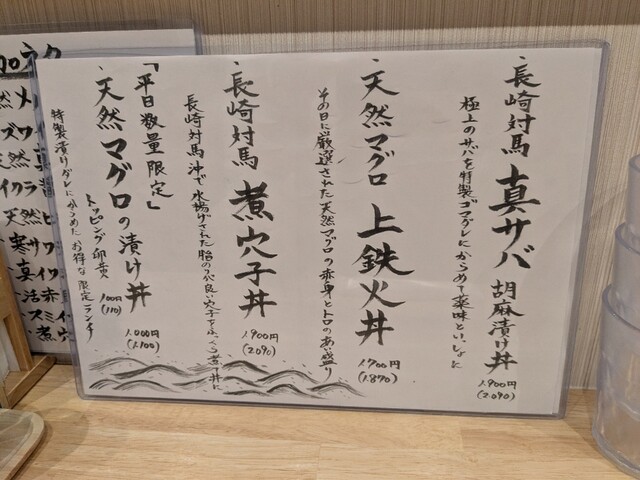 、長崎対馬 真サバ 胡麻漬け丼
1,900円
(2,090)
極上のサバを特製ゴマダレにからめて薬味といっしょに
、天然マグロ 上鉄火丼
1,700円
(1,870)
その日に厳選された天然マグロの赤身とトロのあい盛り
、長崎対馬 煮穴子丼
1,900円
(2,090)
長崎対馬沖で水揚げされた脂の乗
良い穴子をふっくら煮て丼に
「平日数量限定」
、天然マグロの漬け丼
1,000円
(1,100)
トッピング卵黄
100円
(110)
特製漬けダレにからめたお得な限定ランチ